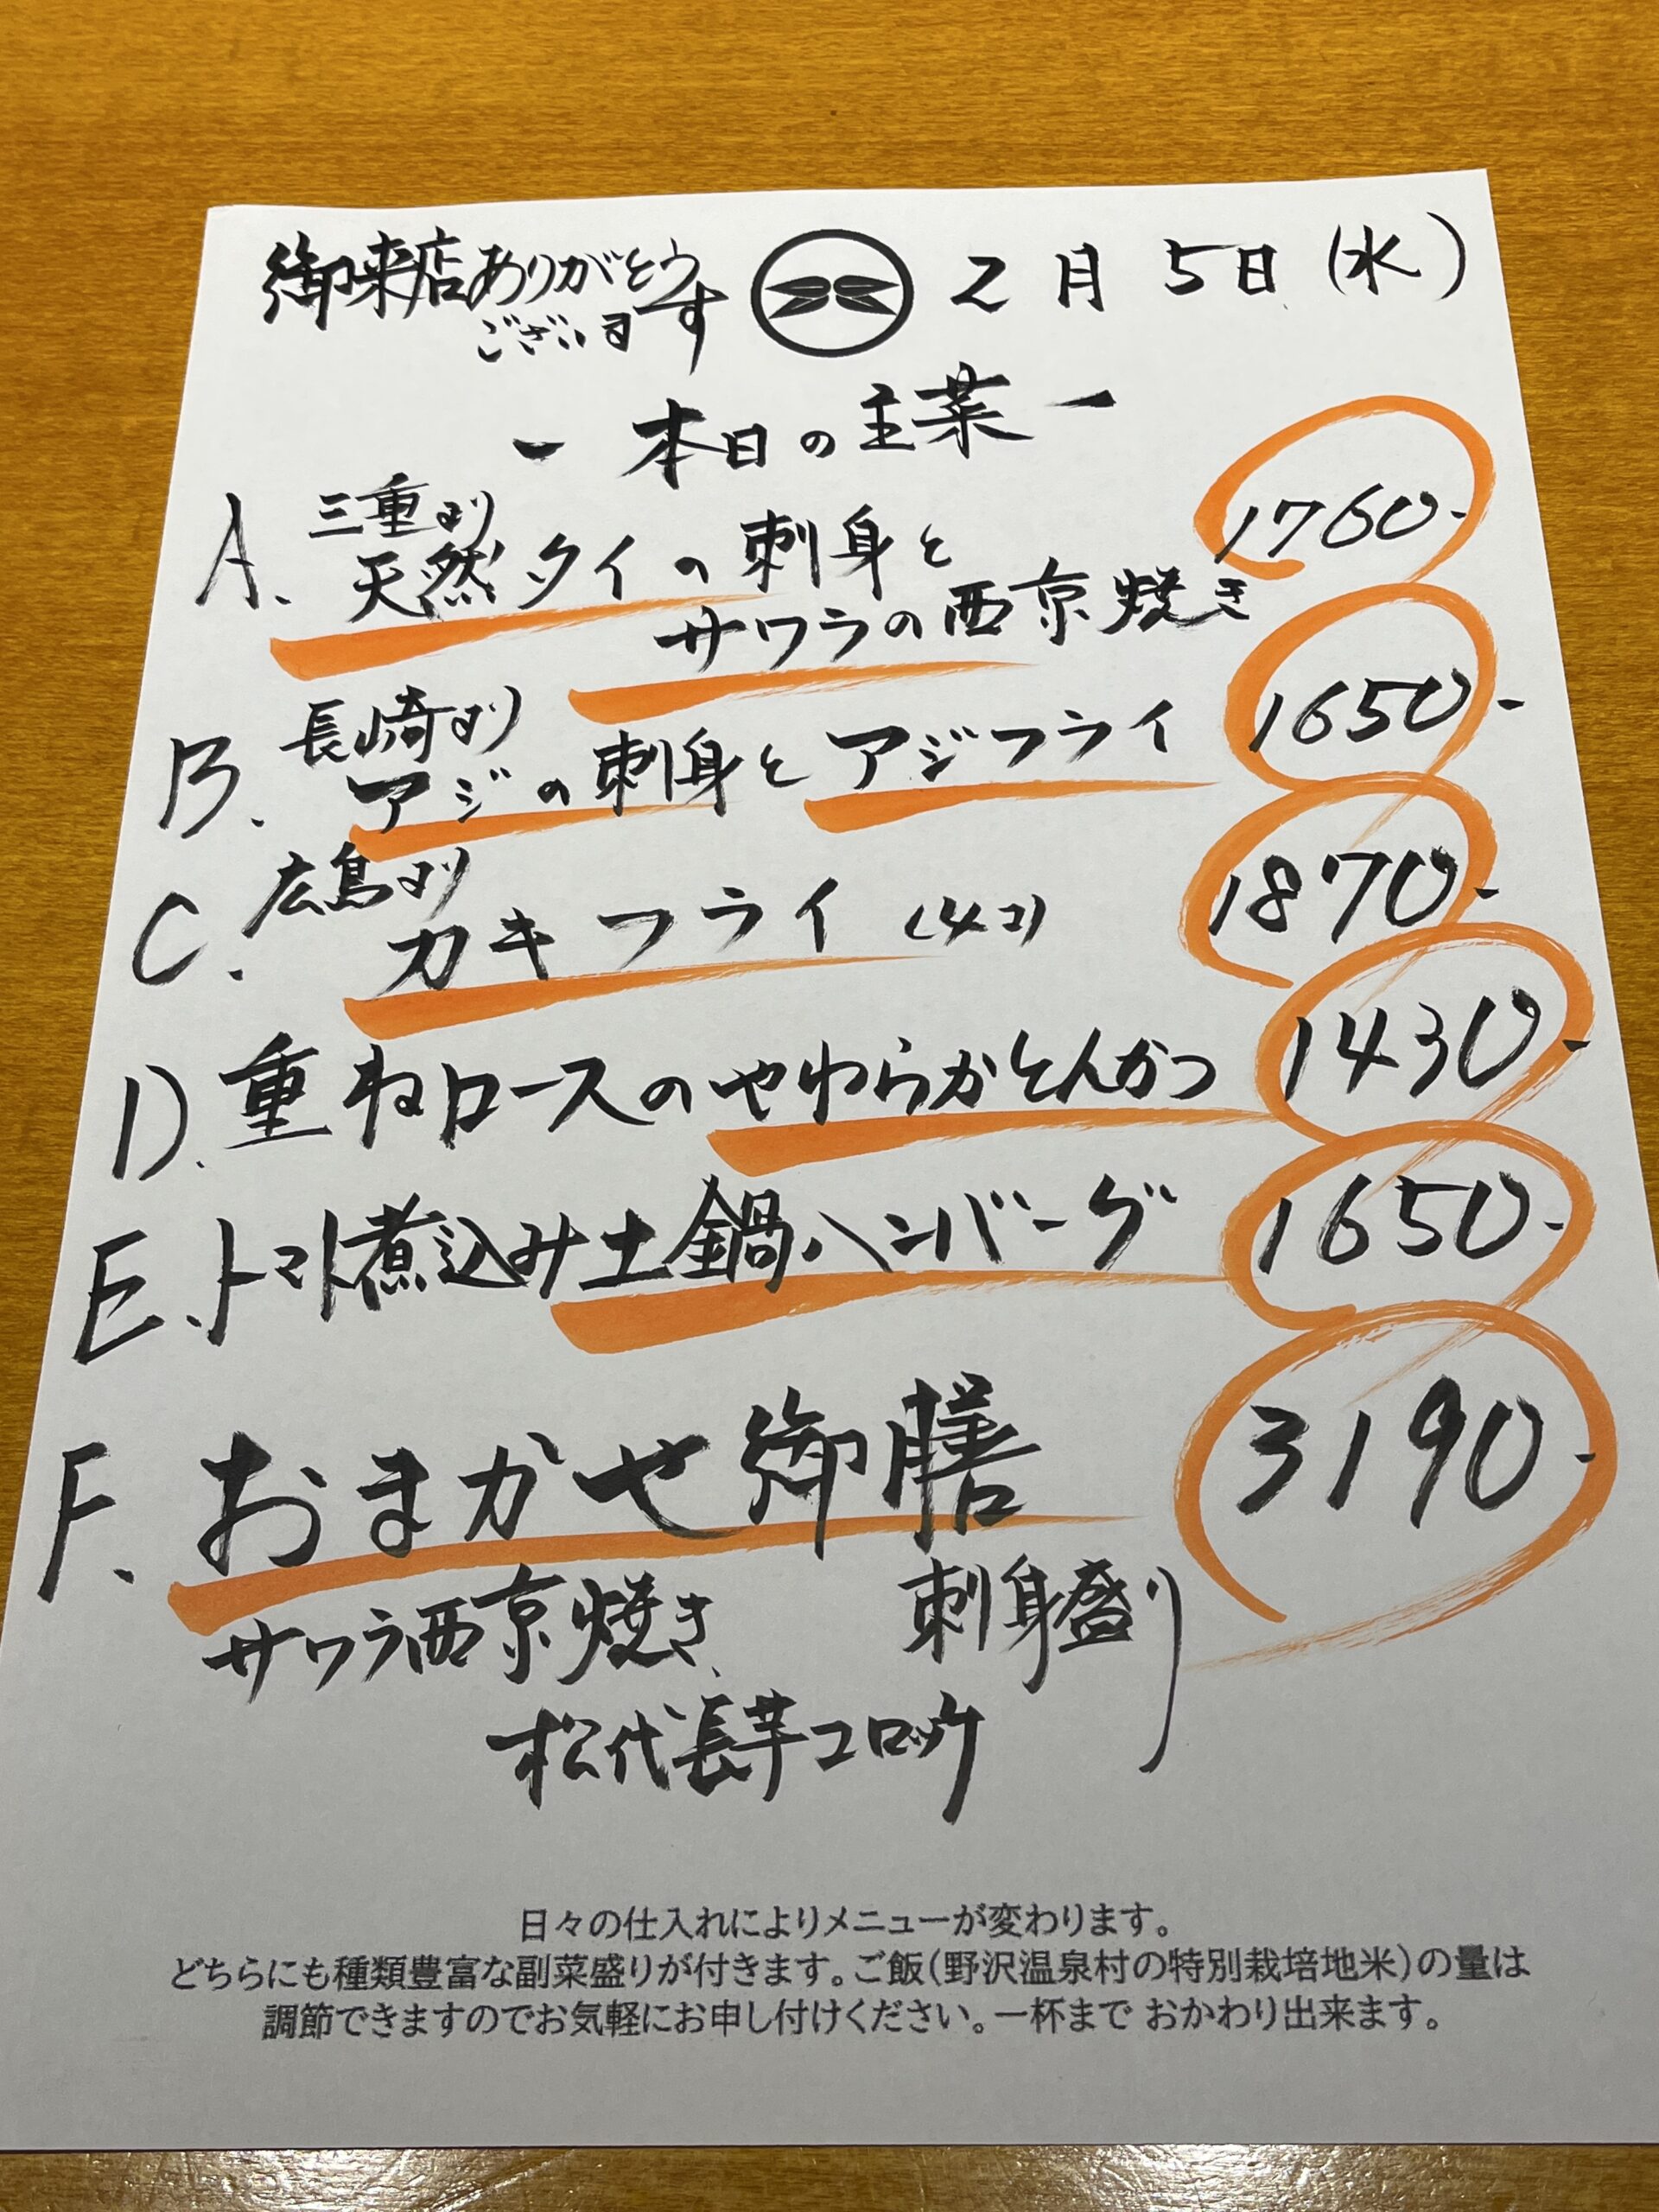 御来店ありがとう
ございます
2月5日(水)
ー本日の主菜ー
A. 三重より
天然タイの刺身と
サワラの西京焼き
1760-
B. 長崎より
アジの刺身とアジフライ 1650-
C. 広島より
カキフライ(4コ) 1870-
D. 重ねロースのやわらかとんかつ 1430-
E. トマト煮込み土鍋ハンバーグ 1650-
F. おまかせ御膳 3190-
サワラ西京焼き、 刺身盛り
松代長芋コロッケ
日々の仕入れによりメニューが変わります。
どちらにも種類豊富な副菜盛りが付きます。ご飯(野沢温泉村の特別栽培地米)の量は
調節できますのでお気軽にお申し付けください。一杯まで おかわり出来ます。